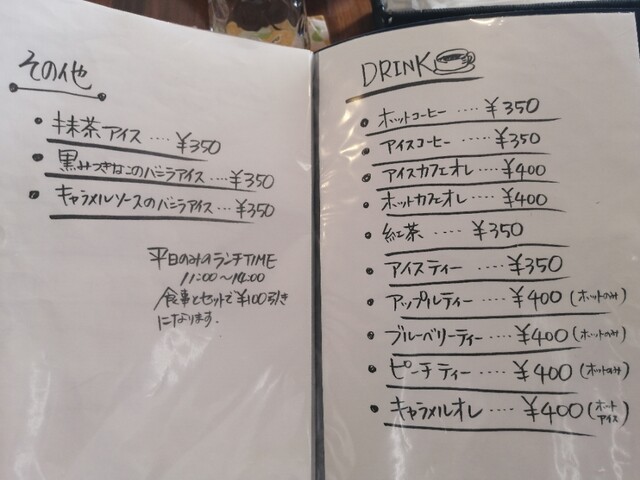 その他
・抹茶アイス ‥‥ ¥350
・黒みつきなこのバニラアイス ‥‥ ¥350
・キャラメルソースのバニラアイス ‥‥ ¥350
平日のみのランチTIME
11:00〜14:00
食事とセットで¥100引き
になります.
DRINK
・ホットコーヒー ‥‥ ¥350
・アイスコーヒー ‥‥ ¥350
・アイスカフェオレ ‥‥ ¥400
・ホットカフェオレ ‥‥ ¥400
・紅茶 ‥‥ ¥350
・アイスティー ‥‥ ¥350
・アップルティー ‥‥ ¥400 (ホットのみ)
・ブルーベリーティー ‥‥ ¥400 (ホットのみ)
・ピーチティー ‥‥ ¥400 (ホットのみ)
・キャラメルオレ ‥‥ ¥400 (ホット
アイス)